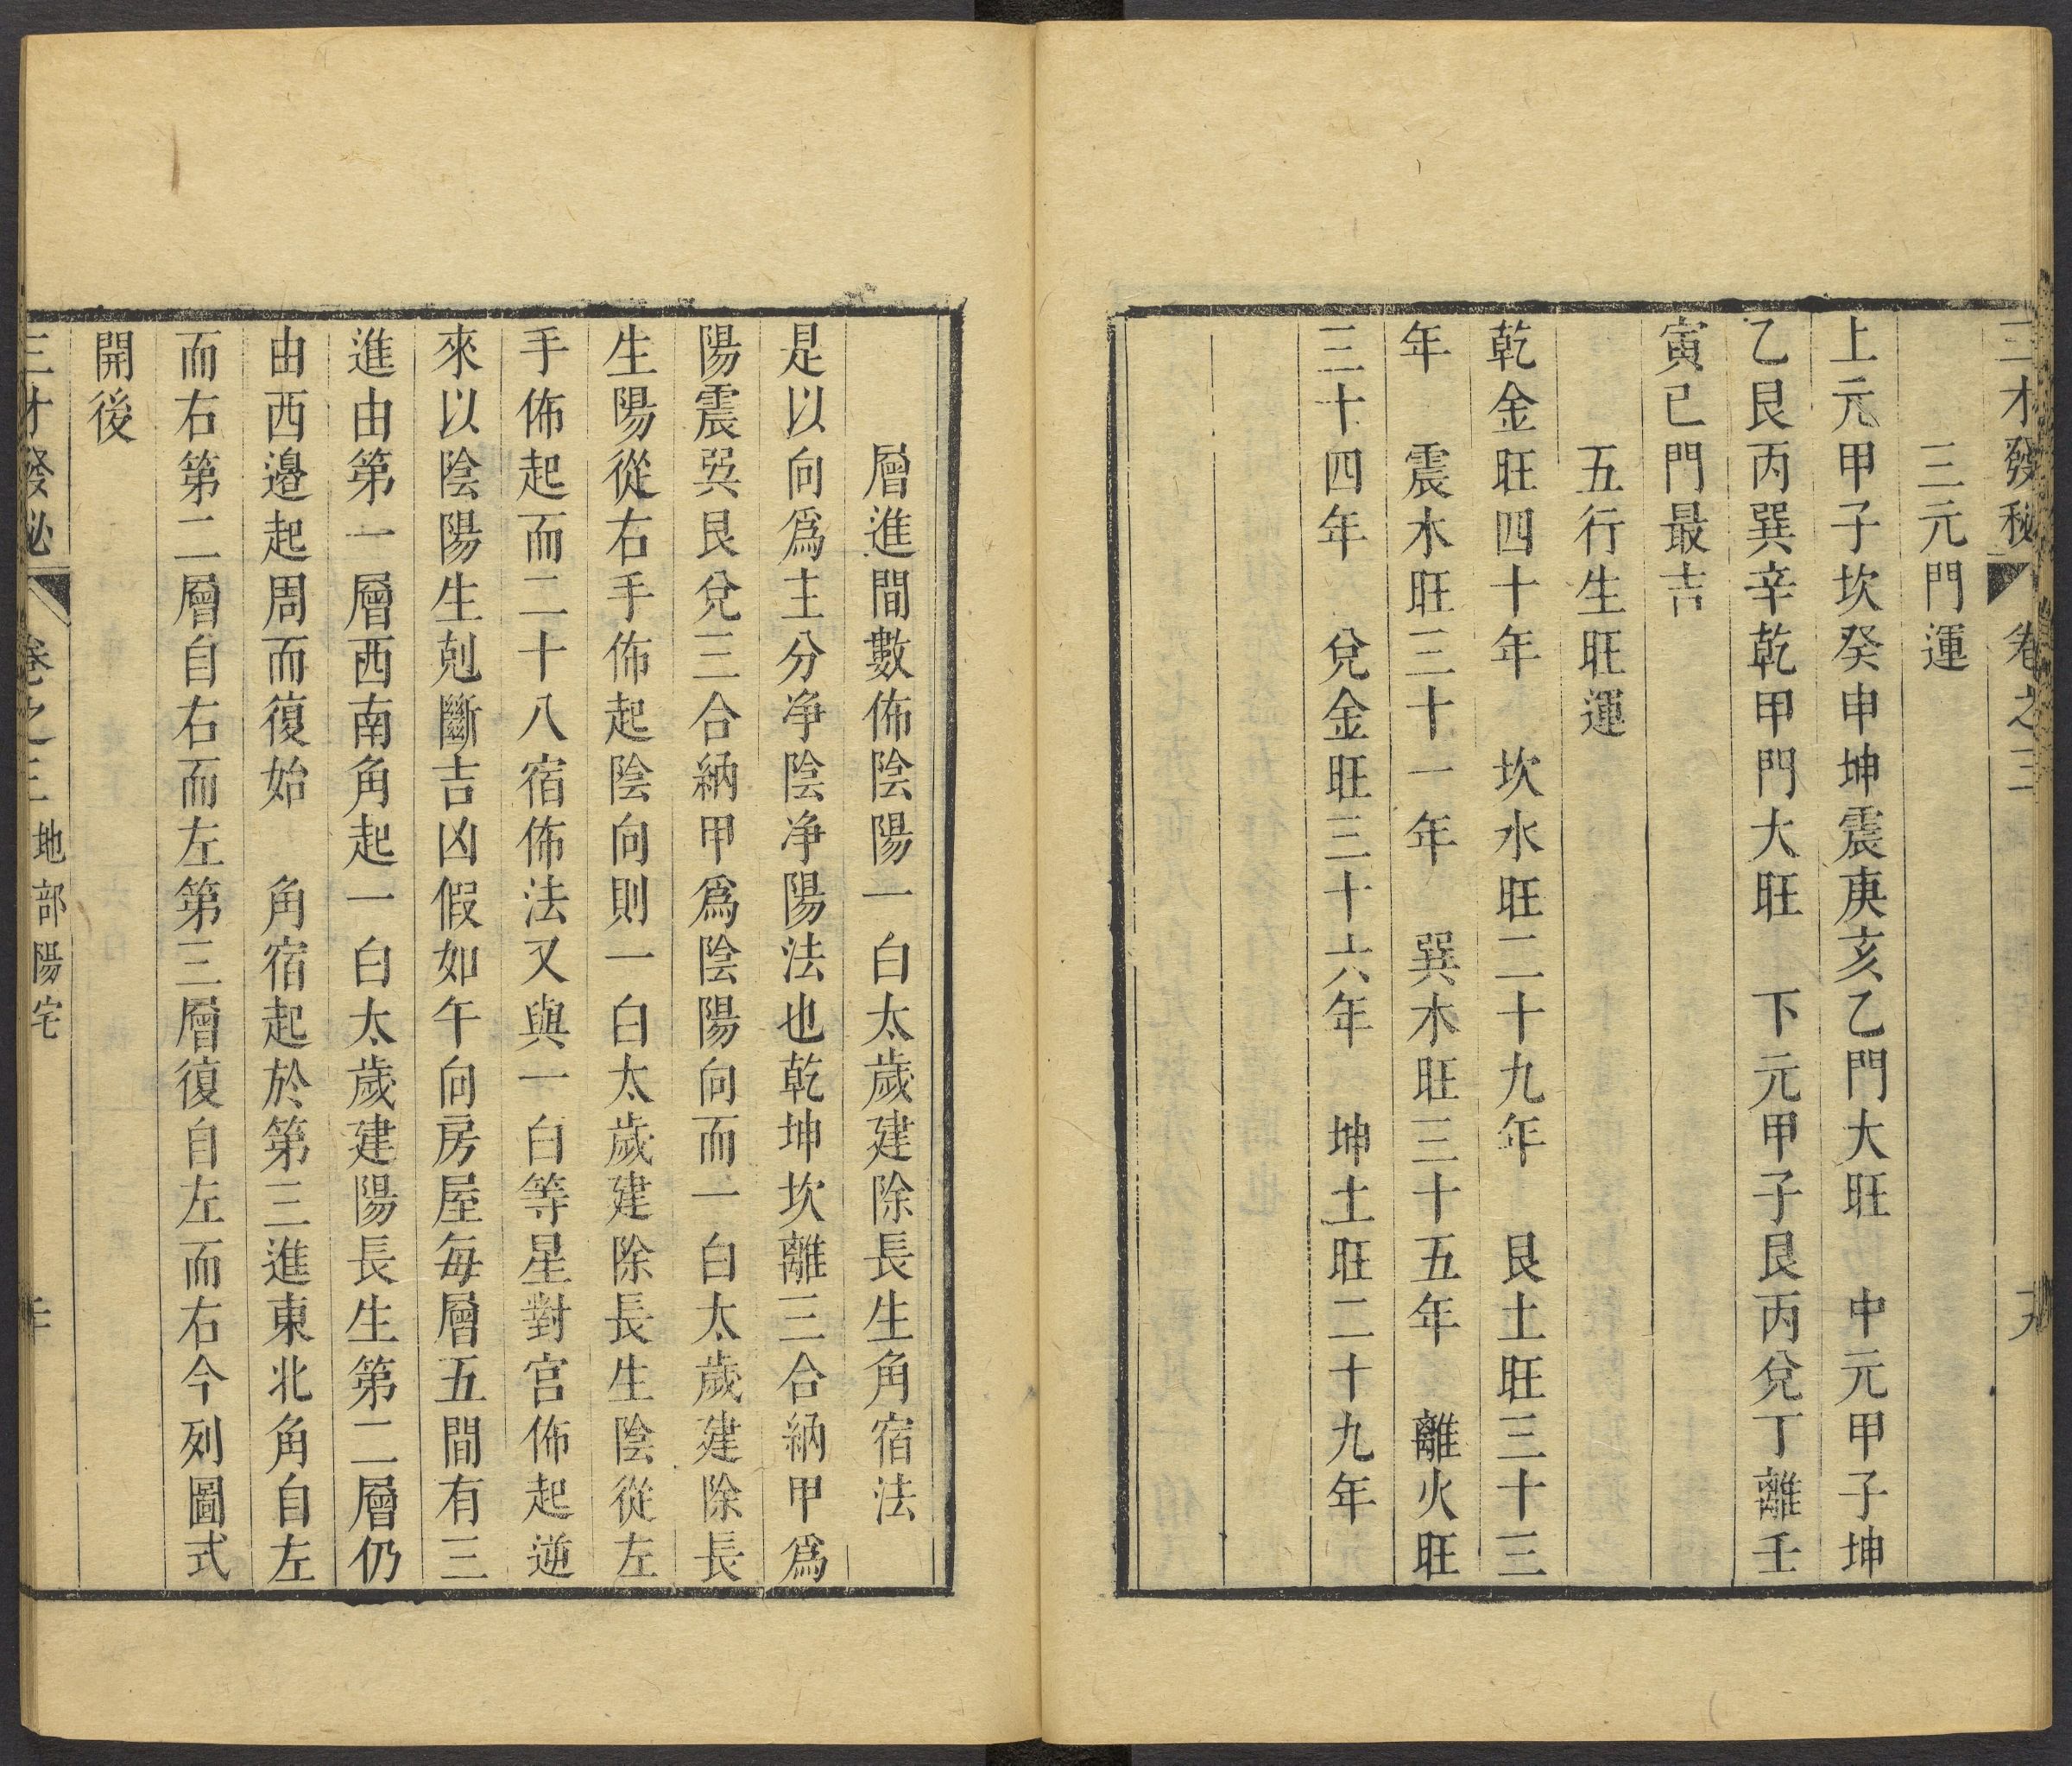 三才發秘 卷之三 十九
三元門運
上元甲子坎癸申坤震庚亥乙門大旺 中元甲子坤
乙艮丙巽辛乾甲門大旺 下元甲子艮丙兌丁離壬
寅已門最吉
五行生旺運
乾金旺四十年 坎水旺二十九年 艮土旺三十三
年 震木旺三十一年 巽木旺三十五年 離火旺
三十四年 兌金旺三十六年 坤土旺二十九年
層進間數佈陰陽一白太歲建除長生角宿法
是以向爲主分净陰净陽法也乾坤坎離三合納甲爲
陽震巽艮兌三合納甲爲陰陽向而一白太歲建除長
生陽從右手佈起陰向則一白太歲建除長生陰從左
手佈起而二十八宿佈法又與一白等星對宫佈起逆
來以陰陽生剋斷吉凶假如午向房屋每層五間有三
進由第一層西南角起一白太歲建陽長生第二層仍
由西邉起周而復始 角宿起於第三進東北角自左
而右第二層自右而左第三層復自左而右今列圖式
開後
三才發秘 卷之三 地部陽宅